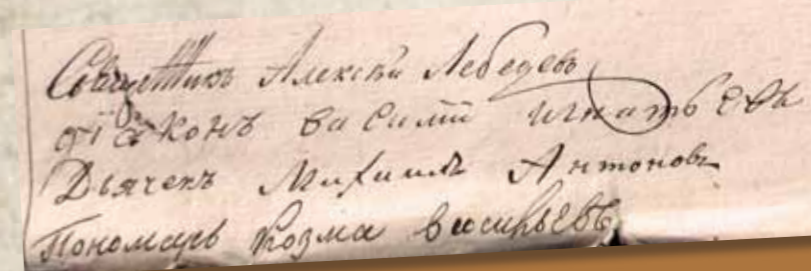 Священникъ Алексѣй Лебедевъ
діаконъ василій игнатьевъ
Дьячекъ Михаилъ Антоновъ
Пономарь Козма васильевъ